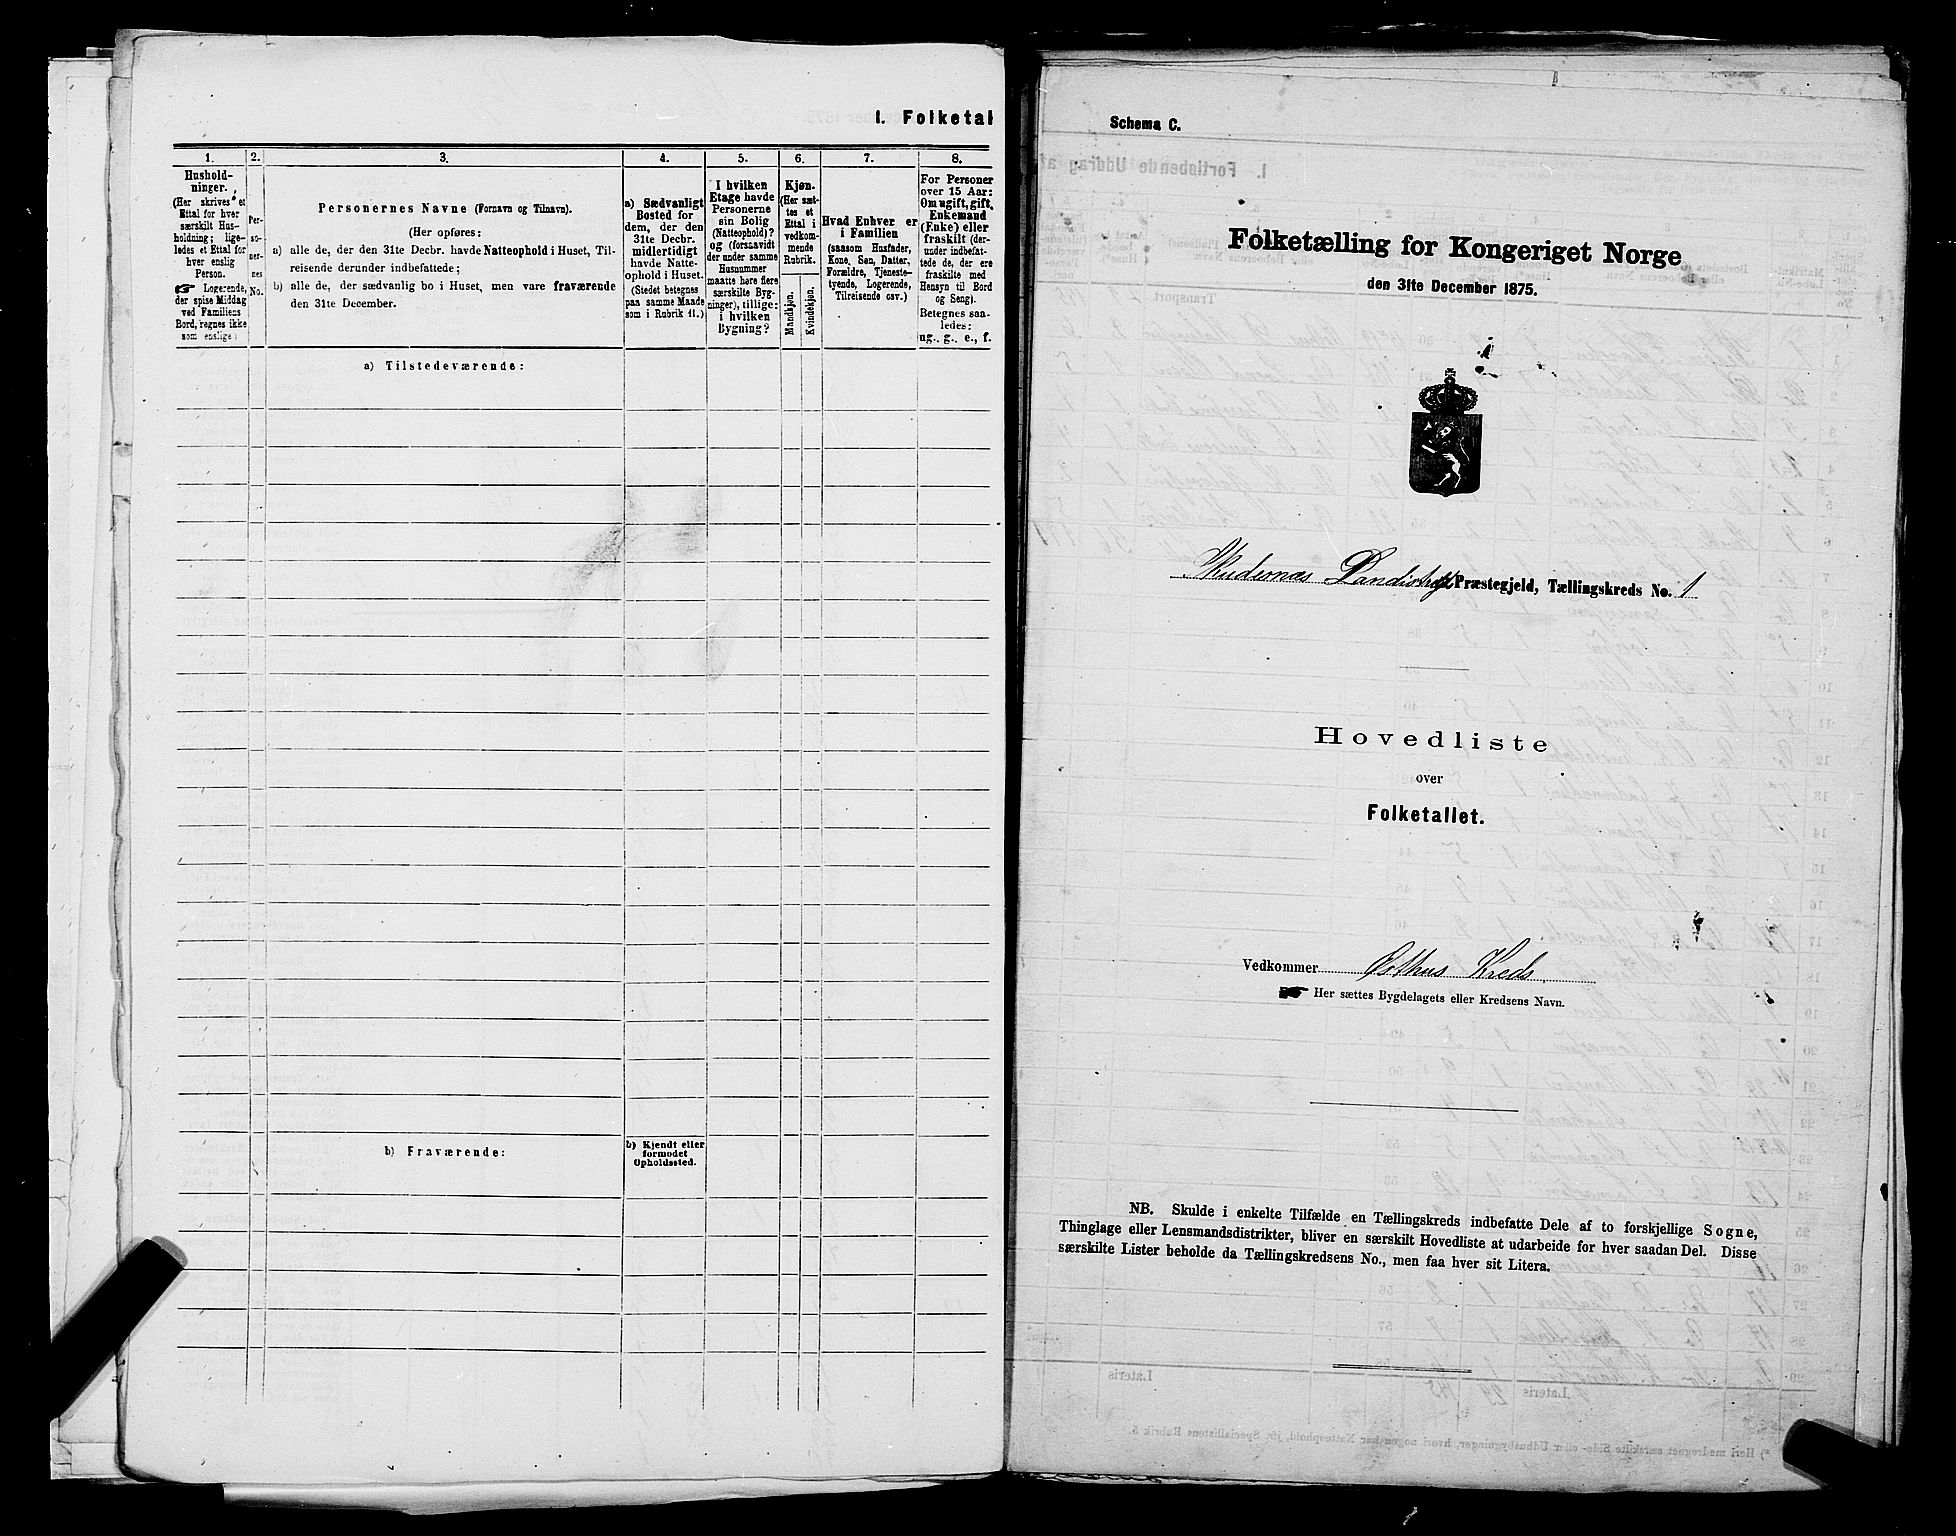 1. Folketal
1. 2. 3. 4. 5. 6. 7. 8.
Hushold-
ninger.
(Her skrives et
Ettal for hver
særskilt Hus-
holdning; lige-
ledes et Ettal for
hver enslig
Person.
☞ Logerende,
der spise Middag
ved Familiens
Bord, regnes ikke
som enslige.)
Per-
so-
ner-
nes
No.
Personernes Navne (Fornavn og Tilnavn).
(Her opføres:
a) alle de, der den 31te Decbr. havde Natteophold i Huset, Til-
reisende derunder indbefattede;
b) alle de, der sædvanlig bo i Huset, men vare fraværende
den 31te December.
a) Sædvanligt
Bosted for
dem, der den
31te Decbr.
midlertidigt
havde Natte-
ophold i Huset.
(Stedet betegnes
paa samme Maade
som i Rubrik 11.)
I hvilken
Etage havde
Personerne
sin Bolig
(Natteophold)?
og (forsaavidt
der under samme
Husnummer
maatte høre flere
særskilte Byg-
ninger), tillige:
i hvilken
Bygning?
Kjøn.
(Her sæt-
tes et
Ettal i
vedkom-
mende
Rubrik.
Mandkjøn.
Kvindekjøn.
Hvad Enhver er
i Familien
(saasom Husfader,
Kone, Søn, Datter,
Forældre, Tjeneste-
tyende, Logerende,
Tilreisende osv.)
For Personer
over 15 Aar:
Om ugift, gift,
Enkemand
(Enke) eller
fraskilt (der-
under indbefat-
tede de, der ere
fraskilte med
Hensyn til Bord
og Seng).
Betegnes saa-
ledes:
ug., g., e., f.
a) Tilstedeværende:
b) Fraværende:
b) Kjendt eller
formodet
Opholdssted.
Schema C.
Folketælling for Kongeriget Norge
den 31te December 1875.
Skudesnæs Landistrigt Præstegjeld, Tællingskreds No. 1
Hovedliste
over
Folketallet.
Vedkommer Østhus Kreds
☞ Her sættes Bygdelagets eller Kredsens Navn.
NB. Skulde i enkelte Tilfælde en Tællingskreds indbefatte Dele af to forskjellige Sogne,
Thinglage eller Lensmandsdistrikter, bliver en særskilt Hovedliste at udarbeide for hver saadan Del. Disse
særskilte Lister beholde da Tællingskredsens No., men faa hver sit Litera.